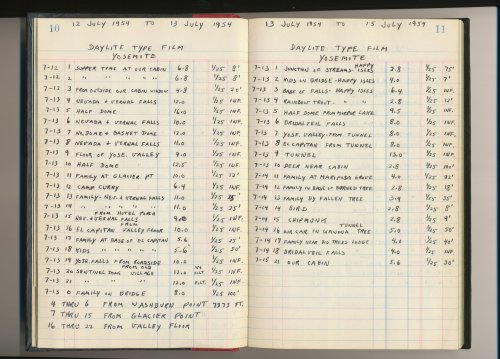 10
12 JULY 1954 TO 13 JULY 1954
DAYLITE TYPE FILM
YOSEMITE
7-12 1 SUPPER TIME AT OUR CABIN 6.8 1/25 8'
7-12 2 " " " " " 6.8 1/25 8'
7-12 3 FROM OUTSIDE OUR CABIN WINDOW 4.8 1/25 20'
7-13 4 NEVADA & VERNAL FALLS 12.0 1/25 INF.
7-13 5 HALF DOME 16.0 1/25 INF.
7-13 6 NEVADA & VERNAL FALLS 10.0 1/25 INF.
7-13 7 NO. DOME & BASKET DOME 12.0 1/25 INF.
7-13 8 NEVADA & VERNAL FALLS 11.0 1/25 INF.
7-13 9 FLOOR OF YOSE. VALLEY 9.0 1/25 INF.
7-13 10 HALF DOME 12.5 1/25 INF.
7-13 11 FAMILY AT GLACIER PT 10.0 1/25 12'
7-13 12 CAMP CURRY 6.4 1/25 INF.
7-13 13 FAMILY- NEV. & VERNAL FALLS 11.0 1/25 25'
7-13 14 " " " " " 11.0 1/25 25'
7-13 15 NEV. & VERNAL FALLS FROM HOTEL PORCH 9.0 1/25 INF.
7-13 16 EL CAPITAN FROM VALLEY FLOOR 10.0 1/25 INF.
7-13 17 FAMILY AT BASE OF EL CAPITAN 5.6 1/25 25'
7-13 18 KIDS " " " " " 5.6 1/25 30'
7-13 19 YOSE. FALLS FROM ROADSIDE 10.0 1/25 INF.
7-13 20 SENTINEL DOME FROM OLD VILLAGE 12.0 NO FILT. 1/25 INF.
7-13 21 " " " 12.0 FILT. 1/25 INF.
7-13 0 FAMILY ON BRIDGE 8.0 1/25 100'
4 THRU 6 FROM WASHBURN POINT 7373 FT.
7 THRU 15 FROM GLACIER POINT
16 THRU 22 FROM VALLEY FLOOR
11
13 JULY 1954 TO 15 JULY 1954
DAYLITE TYPE FILM
YOSEMITE
7-13 1 JUNCTION OF STREAMS- HAPPY ISLES 2.8 1/25 75'
7-13 2 KIDS ON BRIDGE- HAPPY ISLES 4.0 1/25 7'
7-13 3 BABE OF FALLS- HAPPY ISLES 6.4 1/25 INF.
7-13 4 RAINBOW TROUT- " " 2.8 1/25 12'
7-13 5 HALF DOME FROM MIRROR LAKE 9.5 1/25 INF.
7-13 6 BRIDALVEIL FALLS 8.0 1/25 INF.
7-13 7 YOSE. VALLEY- FROM TUNNEL 8.0 1/25 INF.
7-13 8 EL CAPITAN FROM TUNNEL 8.0 1/25 INF.
7-13 9 TUNNEL 13.0 1/25 INF.
7-13 10 DEER NEAR CABIN 2.8 1/25
7-14 11 FAMILY AT MARIPOSA GROVE 4.0 1/25
7-14 12 FAMILY IN BASE OF BURNED TREE 2.8 1/25 18'
7-14 13 FAMILY BY FALLEN TREE 3.4 1/25 35'
7-14 14 BIRD 2.8 1/25 8'
7-14 15 CHIPMUNK 2.8 1/25 9'
7-14 16 OUR CAR IN WAWONA TUNNEL TREE 5.0 1/25 50'
7-14 17 FAMILY NEAR BIG TREES LODGE 4.0 1/25 40'
7-14 18 BRIDALVEIL FALLS 4.0 1/25 INF.
7-15 21 OUR CABIN 5.6 1/25 30'